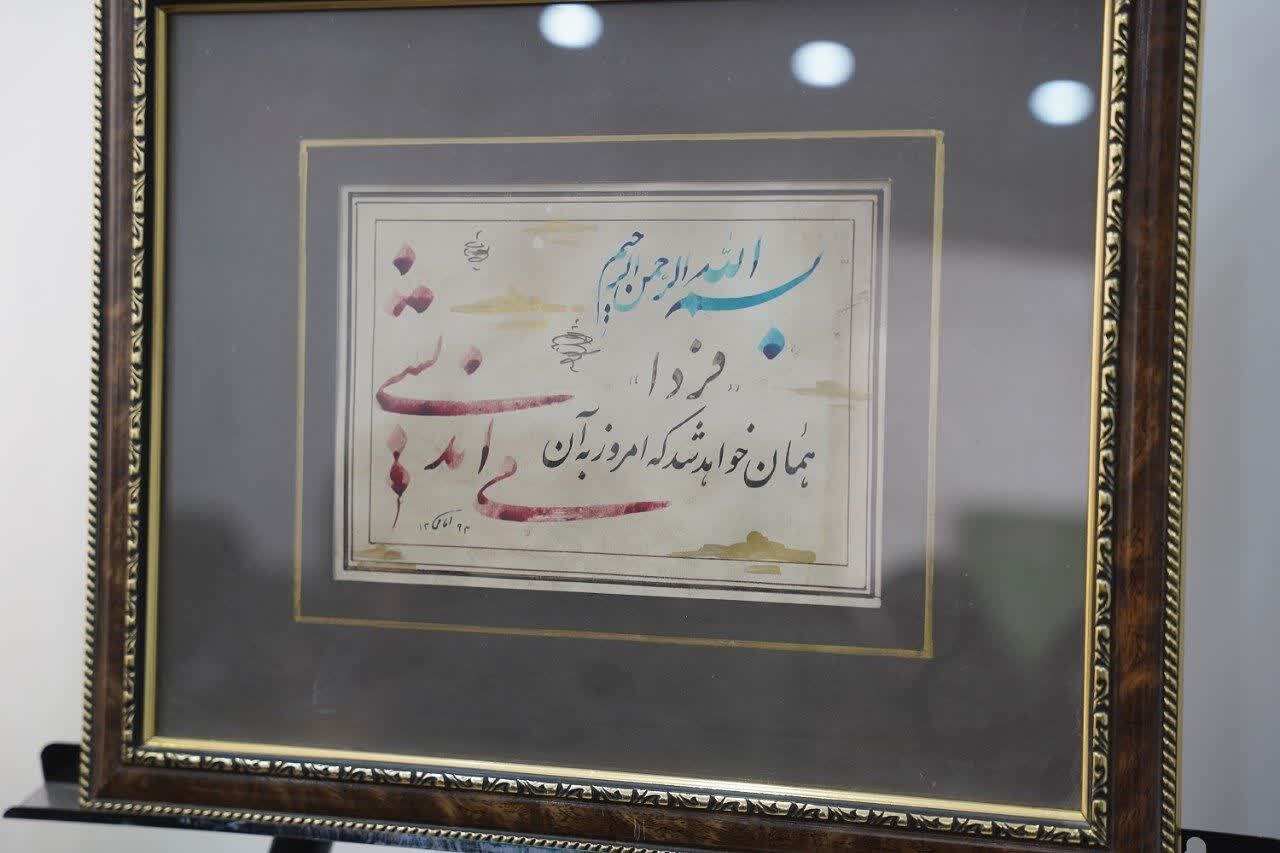 بسم الله الرحمن الرحیم
"فردا"
همان خواهد شد که امروز به آن
می اندیشی